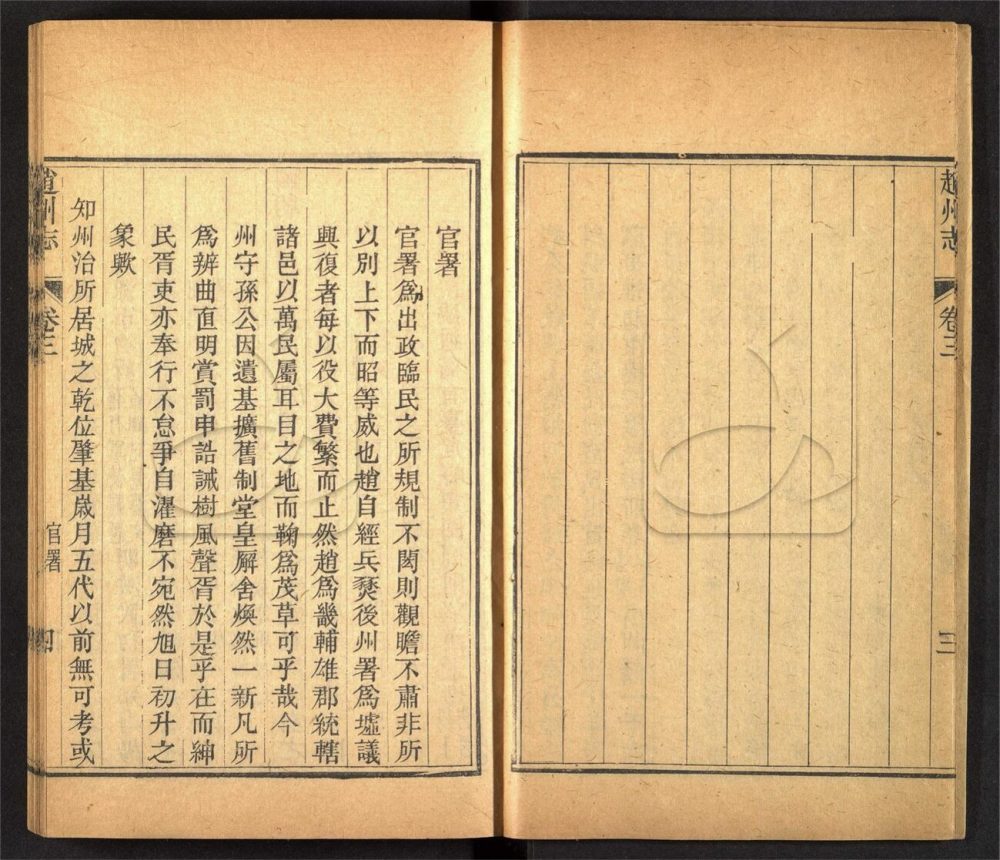 趙州志
卷三
三
官署
官署爲出政臨民之所規制不閎則觀瞻不肅非所
以別上下而昭等威也趙自經兵燹後州署爲墟議
興復者每以役大費繁而止然趙爲畿輔雄郡統轄
諸邑以萬民屬耳目之地而鞠爲茂草可乎哉今
州守孫公因遺基擴舊制堂皇廨舍煥然一新凡所
爲辨曲直明賞罰申誥誡樹風聲胥於是乎在而紳
民胥吏亦奉行不怠爭自濯磨不宛然旭日初升之
象歟
知州治所居城之乾位肇基歲月五代以前無可考或
趙州志
卷三
官署
四